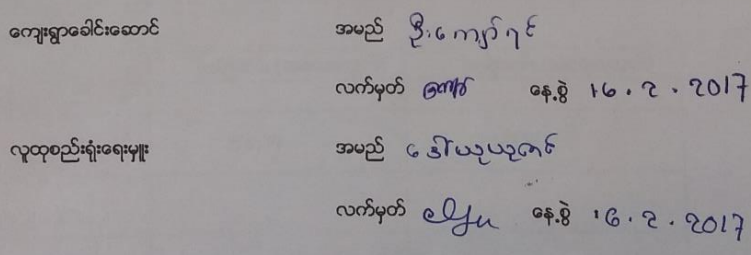 ကျေးရွာခေါင်းဆောင် အမည် ဦးကျော်ရင်
လက်မှတ် ကျော် နေ့စွဲ 16.2.2017
လူထုစည်းရုံးရေးမှူး အမည် ဒေါ်ယုယုအောင်
လက်မှတ် နေ့စွဲ 16.2.2017